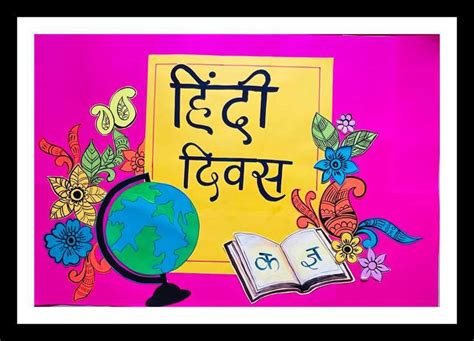 हिंदी
दिवस
क ज्ञ